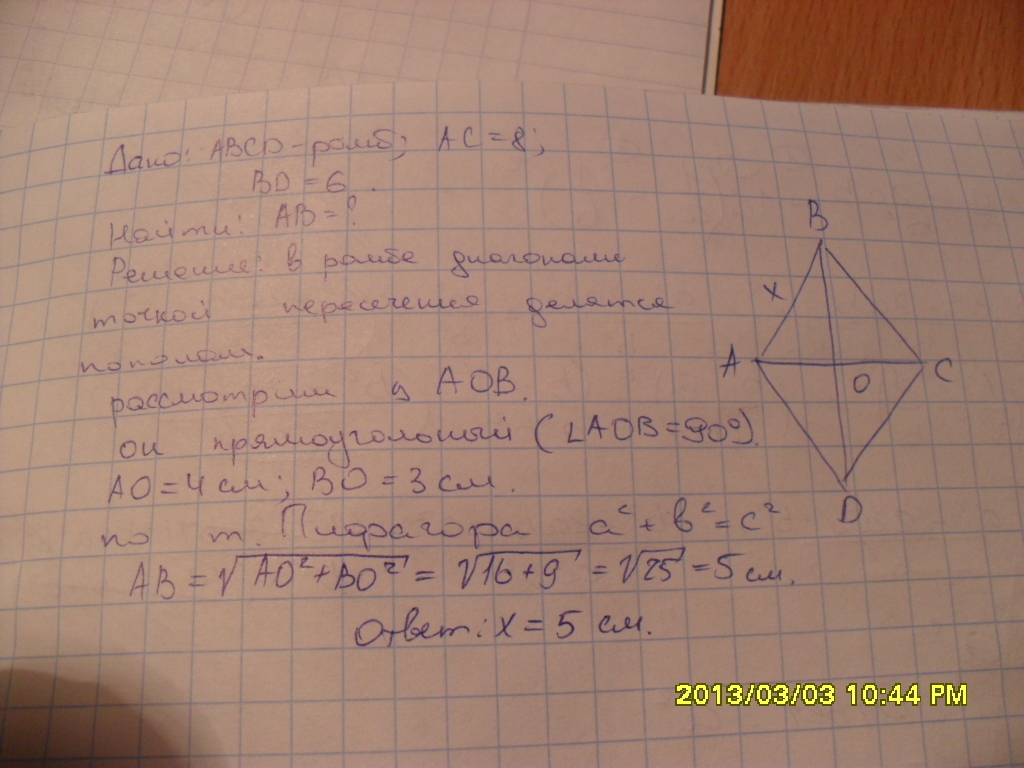 Дано: ABCD - ромб; AC = 8;
BD = 6.
Найти: AB = ?
Решение: в ромбе диагонали
точкой пересечения делятся
пополам.
рассмотрим AOB.
он прямоугольный (∠AOB = 90°).
AO = 4 см; BO = 3 см.
по т. Пифагора a² + b² = c²
AB = √AO² + BO² = √16 + 9 = √25 = 5 см.
Ответ: x = 5 см.
B
x
A
O
C
D
2013/03/03 10:44 PM